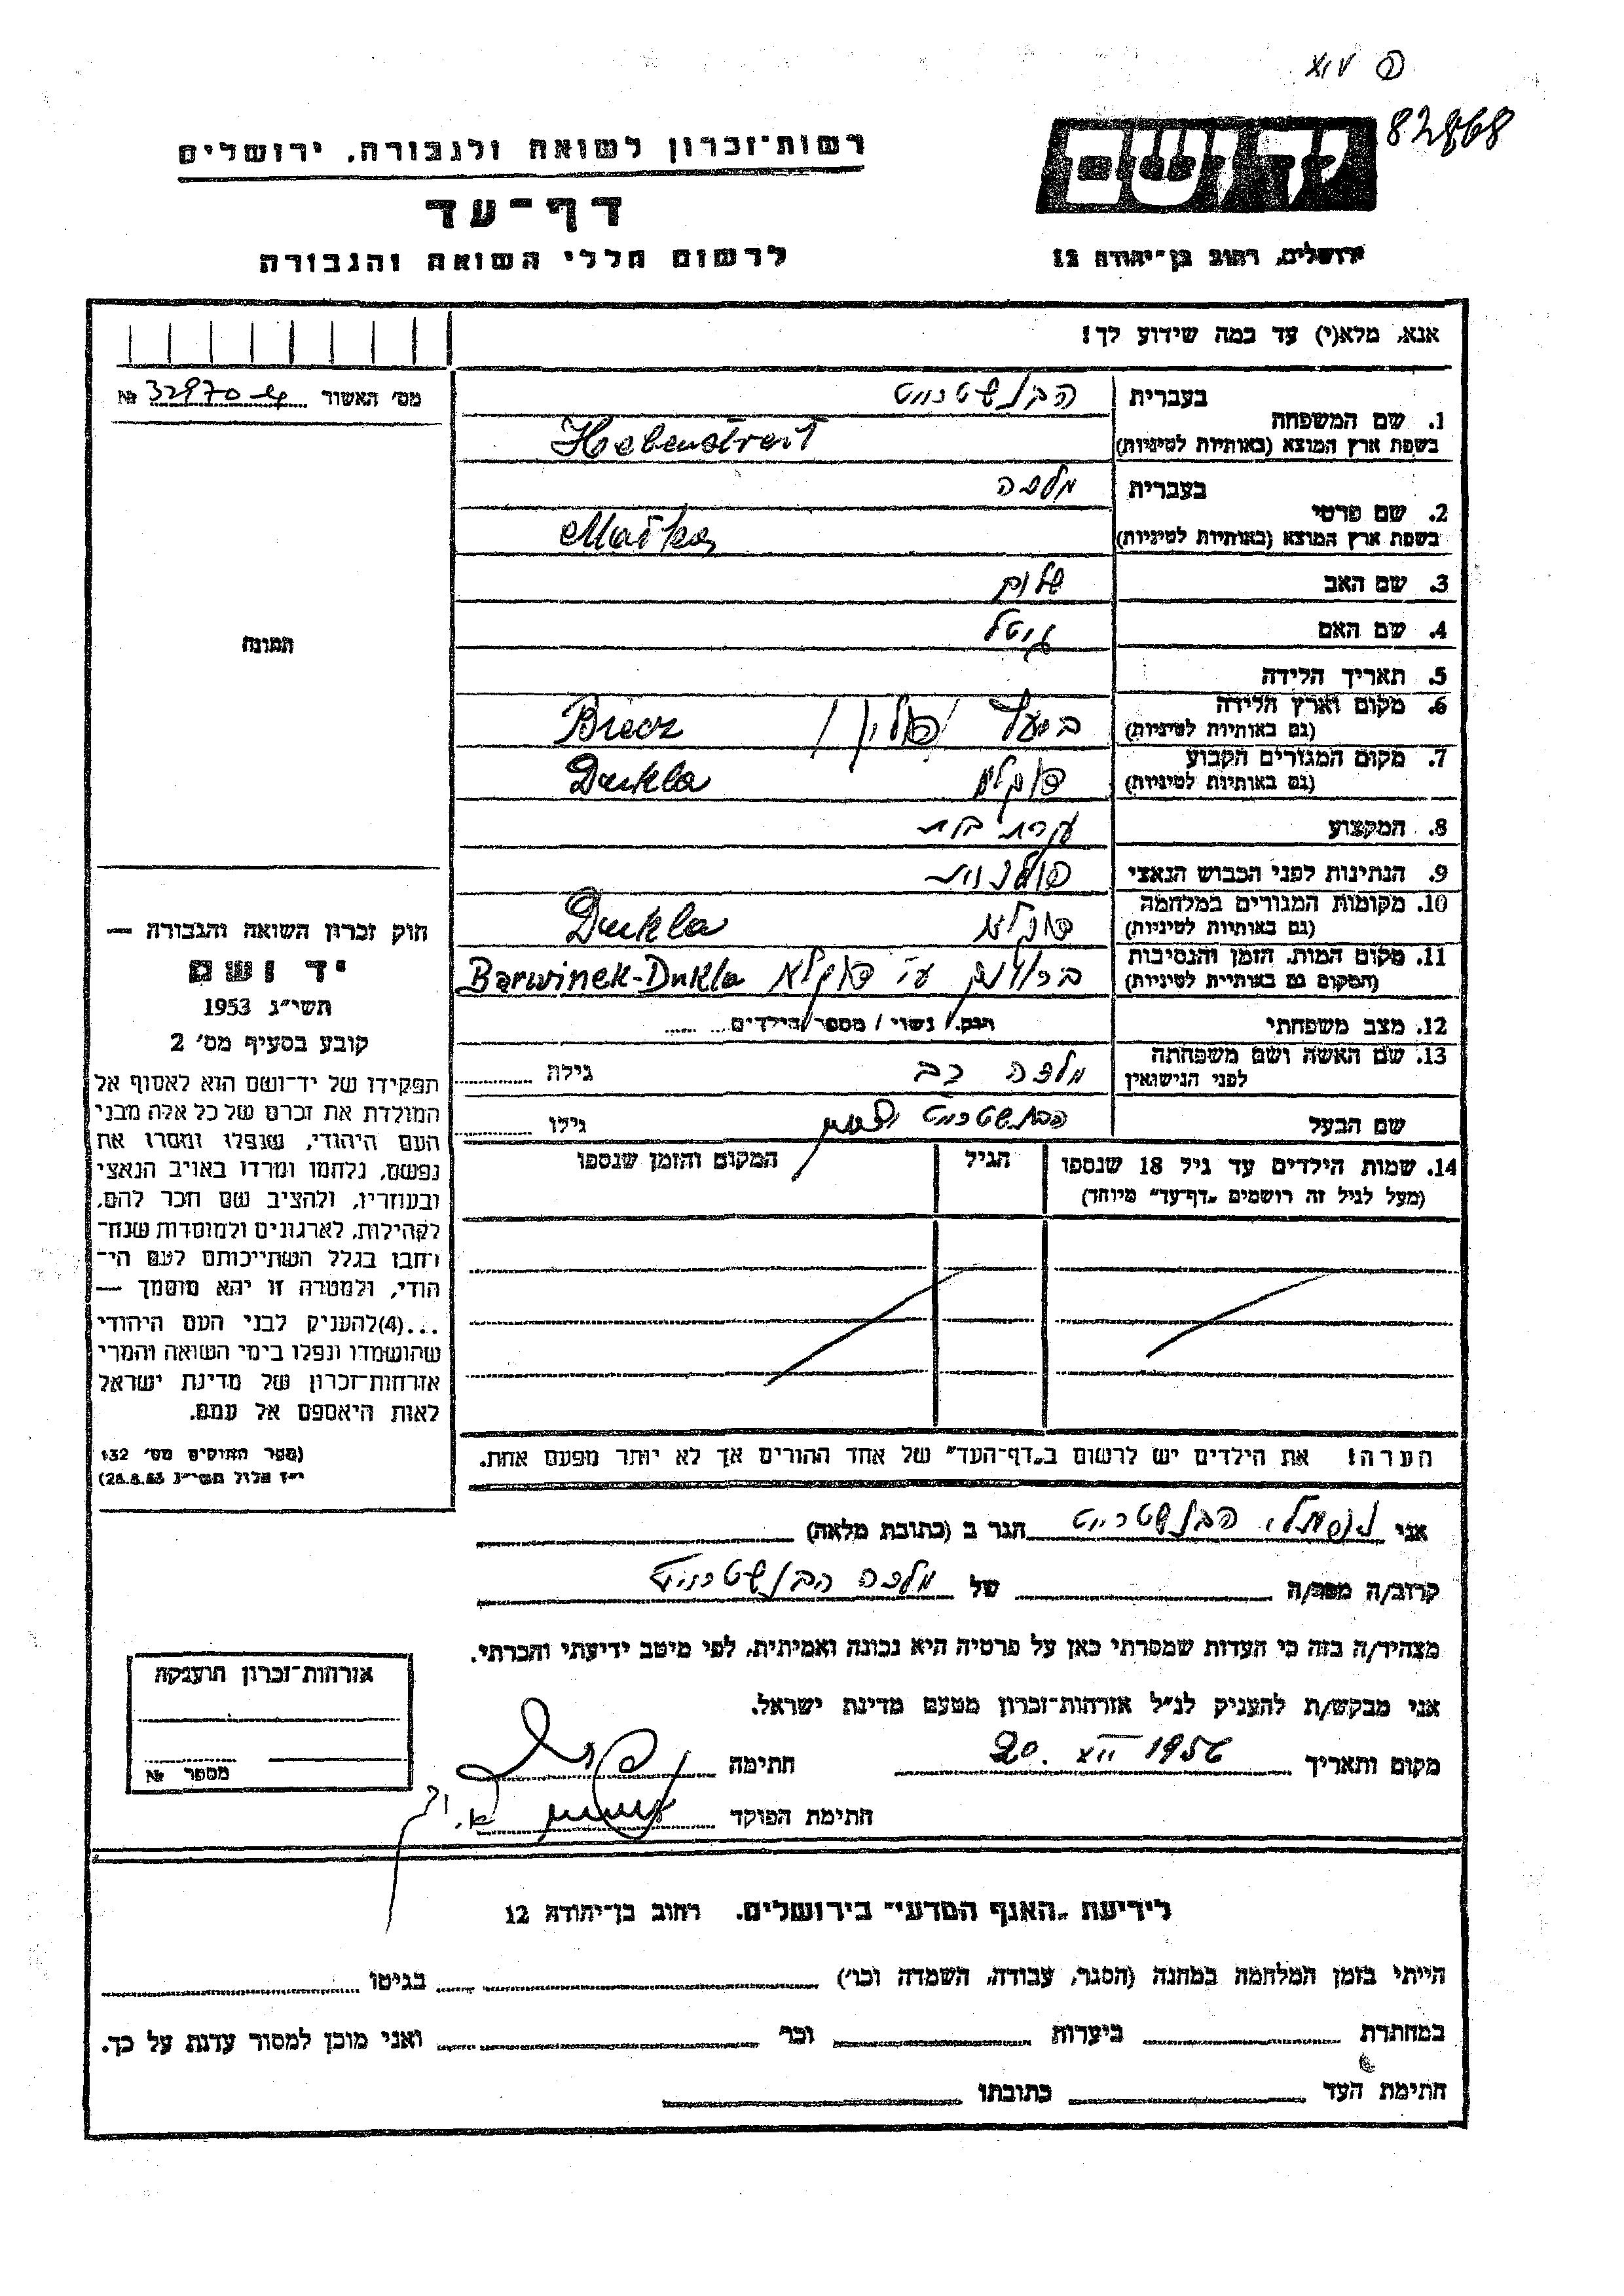 XIV
82868
יד ושם
רשות־זכרון לשואה ולגבורה, ירושלים
דף־עד
ירושלים, רחוב בן־יהודה 12
לרשום חללי השואה והגבורה
אנא, מלא(י) עד כמה שידוע לך!
מס' האשור 32970 №
1. שם המשפחה
בעברית הבנשטרייט
בשפת ארץ המוצא (באותיות לטיניות) Hebenstreit
2. שם פרטי
בעברית מלכה
בשפת ארץ המוצא (באותיות לטיניות) Malka
3. שם האב שלום
4. שם האם גיטל
5. תאריך הלידה
6. מקום וארץ הלידה (גם באותיות לטיניות) /פולין/ Biecz
7. מקום המגורים הקבוע (גם באותיות לטיניות) דוקלא Dukla
8. המקצוע עקרת בית
9. הנתינות לפני הכבוש הנאצי פולנית
10. מקומות המגורים במלחמה (גם באותיות לטיניות) דוקלא Dukla
11. מקום המות, הזמן והנסיבות (המקום גם באותיית לטיניות) עי דוקלא Barwinek-Dukla
12. מצב משפחתי רווק / נשוי / מספר הילדים
13. שם האשה ושם משפחתה לפני הנישואין מלכה רב גילה
שם הבעל הבנשטרייט גילו
14. שמות הילדים עד גיל 18 שנספו הגיל המקום והזמן שנספו
(מעל לגיל זה רושמים „דף־עד״ מיוחד)
הערה! את הילדים יש לרשום ב„דף־העד״ של אחד ההורים אך לא יותר מפעם אחת.
תמונה
חוק זכרון השואה והגבורה —
יד ושם
תשי״ג 1953
קובע בסעיף מס' 2
תפקידו של יד־ושם הוא לאסוף אל
המולדת את זכרם של כל אלה מבני
העם היהודי, שנפלו ומסרו את
נפשם, נלחמו ומרדו באויב הנאצי
ובעוזריו, ולהציב שם וזכר להם,
לקהילות, לארגונים ולמוסדות שנח־
רחבו בגלל השתייכותם לעם הי־
הודי, ולמטרה זו יהא מוסמך —
...(4)להעניק לבני העם היהודי
שהושמדו ונפלו בימי השואה והמרי
אזרחות־זכרון של מדינת ישראל
לאות היאספם אל עמם.
(ספר החוקים מס' 132
י״ז אלול תשי״ג 28.8.53)
אני נפתלי הבנשטרייט הגר ב (כתובת מלאה)
קרוב/ה מכר/ה של מלכה הבנשטרייט
מצהיר/ה בזה כי העדות שמסרתי כאן על פרטיה היא נכונה ואמיתית, לפי מיטב ידיעתי והכרתי.
אני מבקש/ת להעניק לנ״ל אזרחות־זכרון מטעם מדינת ישראל.
מקום ותאריך 20. XII 1956 חתימה
חתימת הפוקד
אזרחות־זכרון הוענקה
מספר №
לידיעת „האגף המדעי״ בירושלים, רחוב בן־יהודה 12
הייתי בזמן המלחמה במחנה (הסגר, עבודה, השמדה וכו') בגיטו
במחתרת ביערות וכו' ואני מוכן למסור עדות על כך.
חתימת העד כתובתו